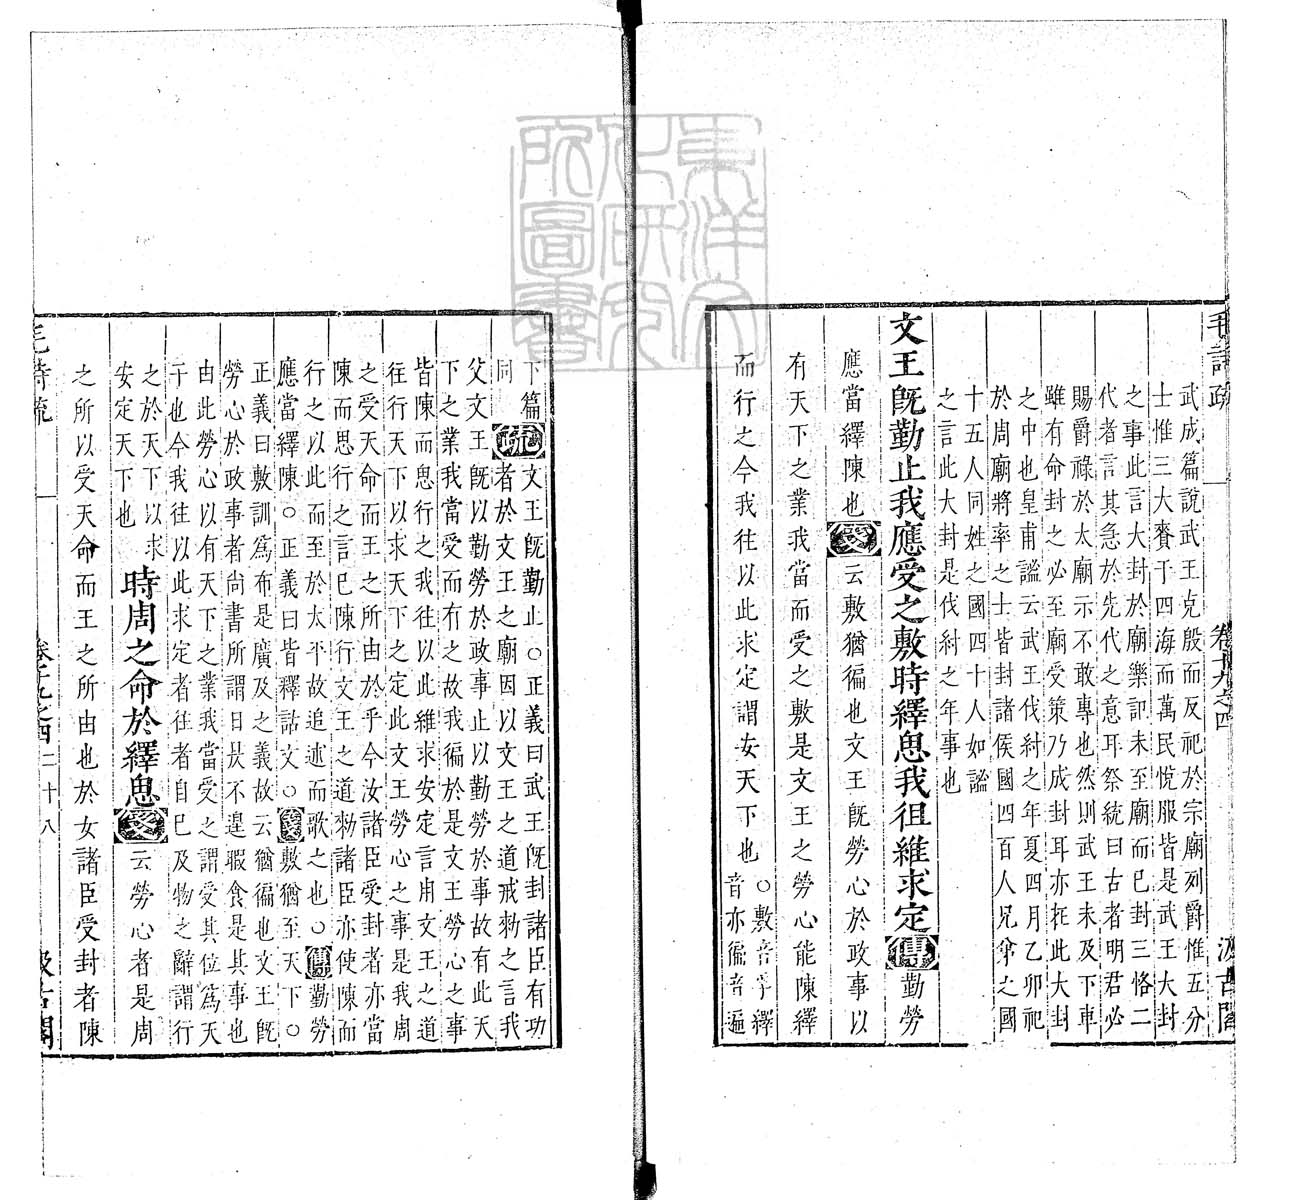 毛詩疏
卷十九之四
汲古閣
武成篇說武王克殷而反祀於宗廟列爵惟五分
士惟三大賚于四海而萬民悅服皆是武王大封
之事此言大封於廟樂記未至廟而已封三恪二
代者言其急於先代之意耳祭統曰古者明君必
賜爵祿於太廟示不敢專也然則武王未及下車
雖有命封之必至廟受策乃成封耳亦在此大封
之中也皇甫謐云武王伐紂之年夏四月乙卯祀
於周廟將率之士皆封諸侯國四百人兄弟之國
十五人同姓之國四十人如謐
之言此大封是伐紂之年事也
文王既勤止我應受之敷時繹思我徂維求定傳勤勞
應當繹陳也箋云敷猶徧也文王既勞心於政事以
有天下之業我當而受之敷是文王之勞心能陳繹
而行之今我往以此求定謂安天下也
○敷音孚繹
音亦徧音遍
下篇
同
疏
文王既勤止○正義曰武王既封諸臣有功
者於文王之廟因以文王之道戒勑之言我
父文王既以勤勞於政事止以勤勞於事故有此天
下之業我當受而有之故我徧於是文王勞心之事
皆陳而思行之我往以此維求安定言用文王之道
往行天下以求天下之定此文王勞心之事是我周
之受天命而王之所由於乎今汝諸臣受封者亦當
陳而思行之言已陳行文王之道勑諸臣亦使陳而
行之以此而至於太平故追述而歌之也○傳勤勞
應當繹陳○正義曰皆釋詁文○箋敷猶至天下○
正義曰敷訓爲布是廣及之義故云猶徧也文王既
勞心於政事者尚書所謂日昃不遑暇食是其事也
由此勞心以有天下之業我當受之謂受其位爲天
子也今我往以此求定者往者自己及物之辭謂行
之於天下以求
安定天下也
時周之命於繹思箋云勞心者是周
之所以受天命而王之所由也於女諸臣受封者陳
毛詩疏
卷十九之四
二十八
汲古閣